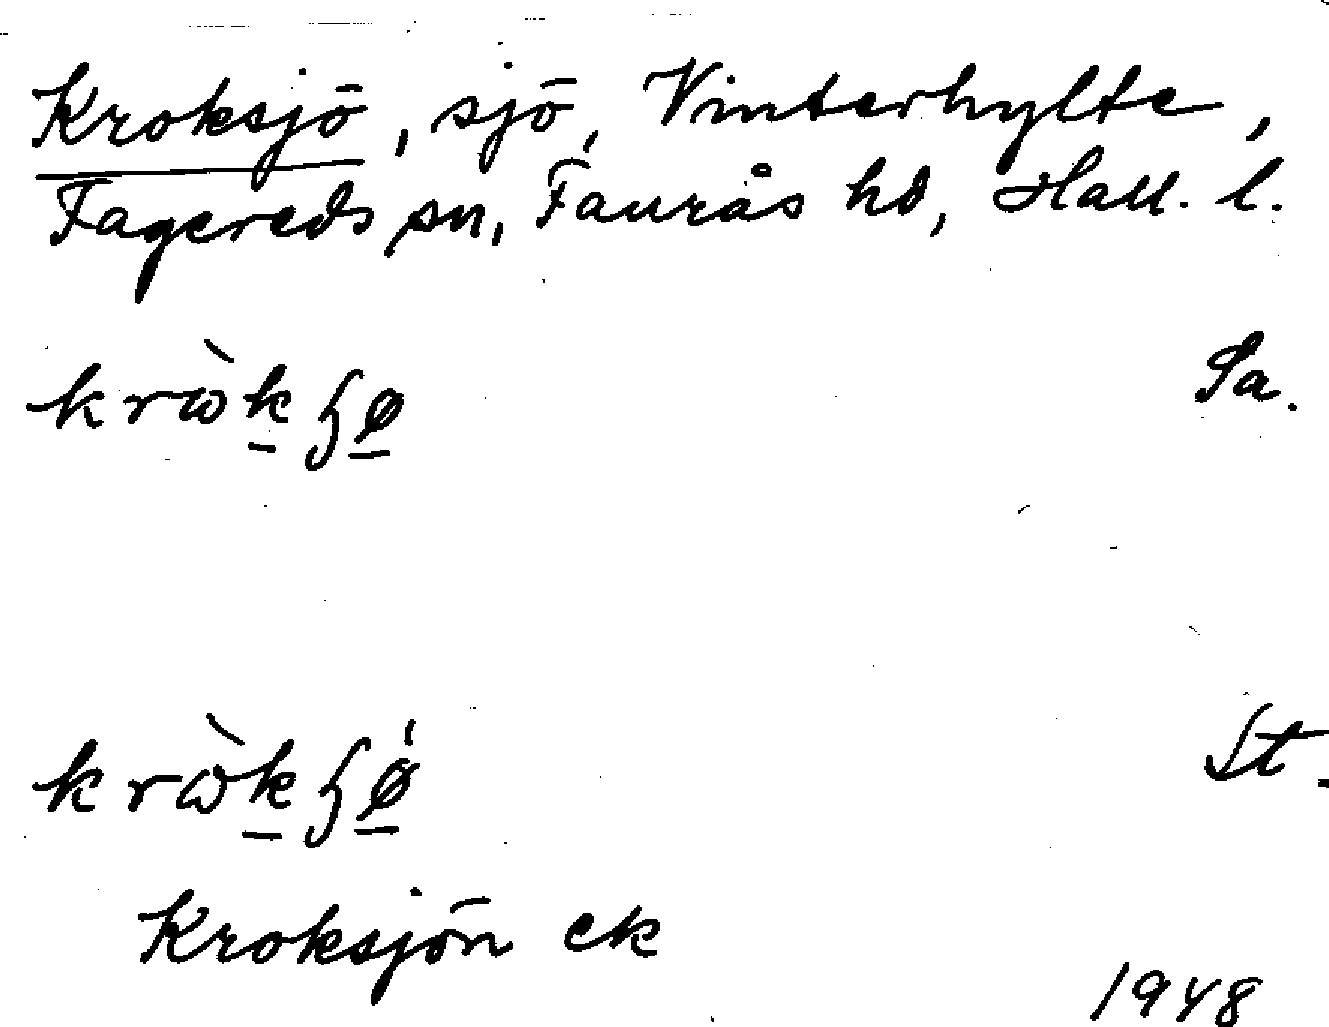 Kroksjö, sjö, Vinterhylte,
Fagereds sn, Faurås hd, Hall. l.
krὼkʃø Sa.
krὼkʃǿ St.
Kroksjön ek
1948